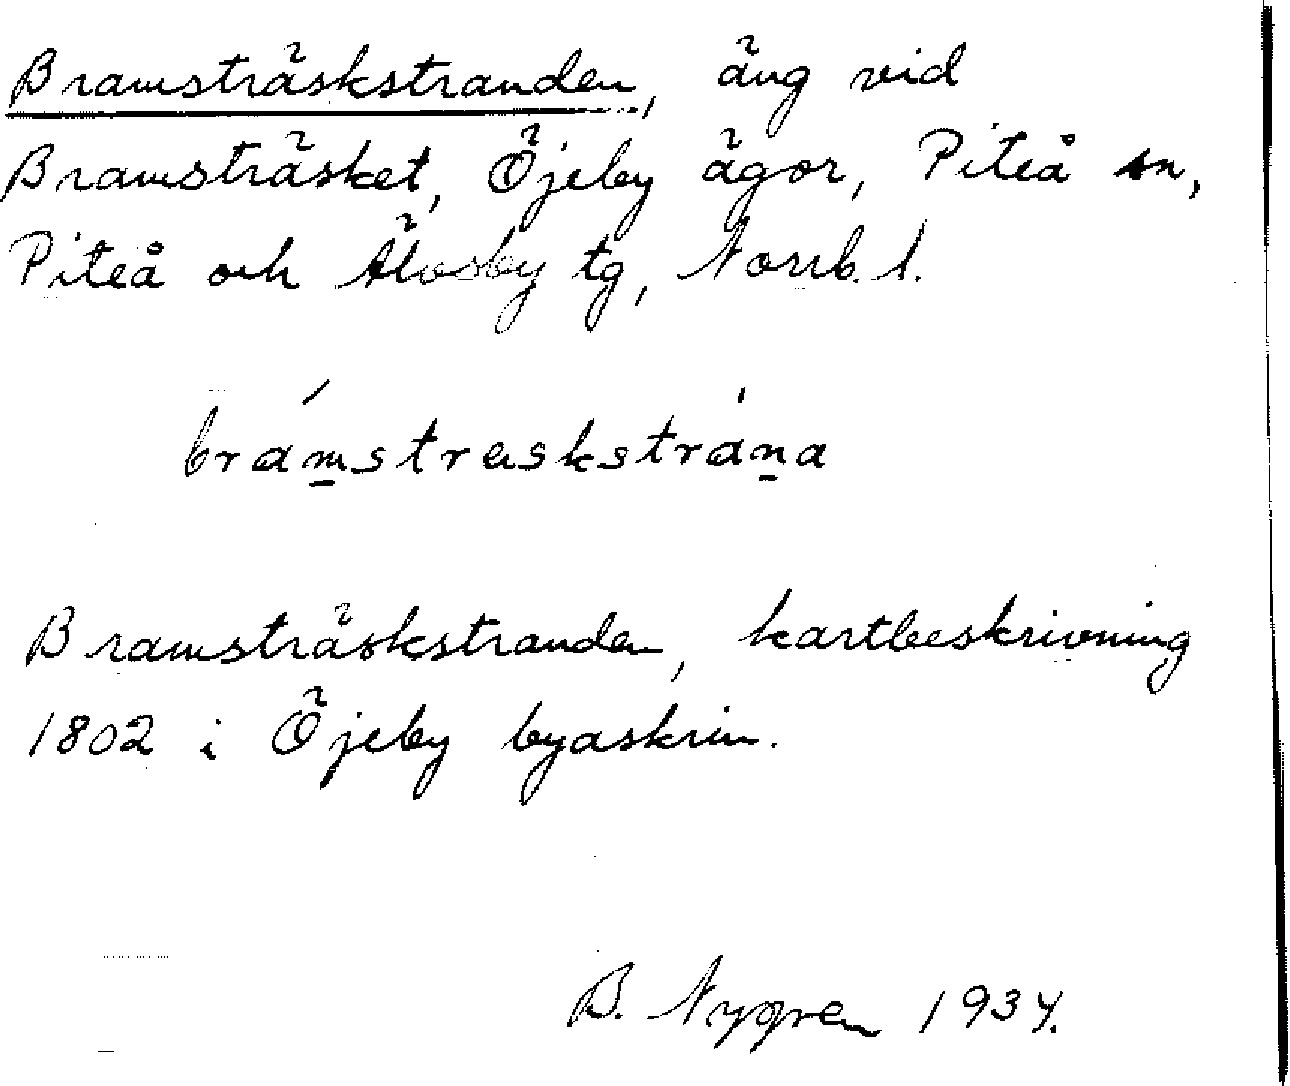 Bramsträskstranden, äng vid
Bramsträsket, Öjeby ägor, Piteå sn,
Piteå och Älvsby tg, Norrb. l.
brámstræskstrána
Bramsträskstranden, kartbeskrivning
1802 i Öjeby byaskrin.
B. Nygren 1934.